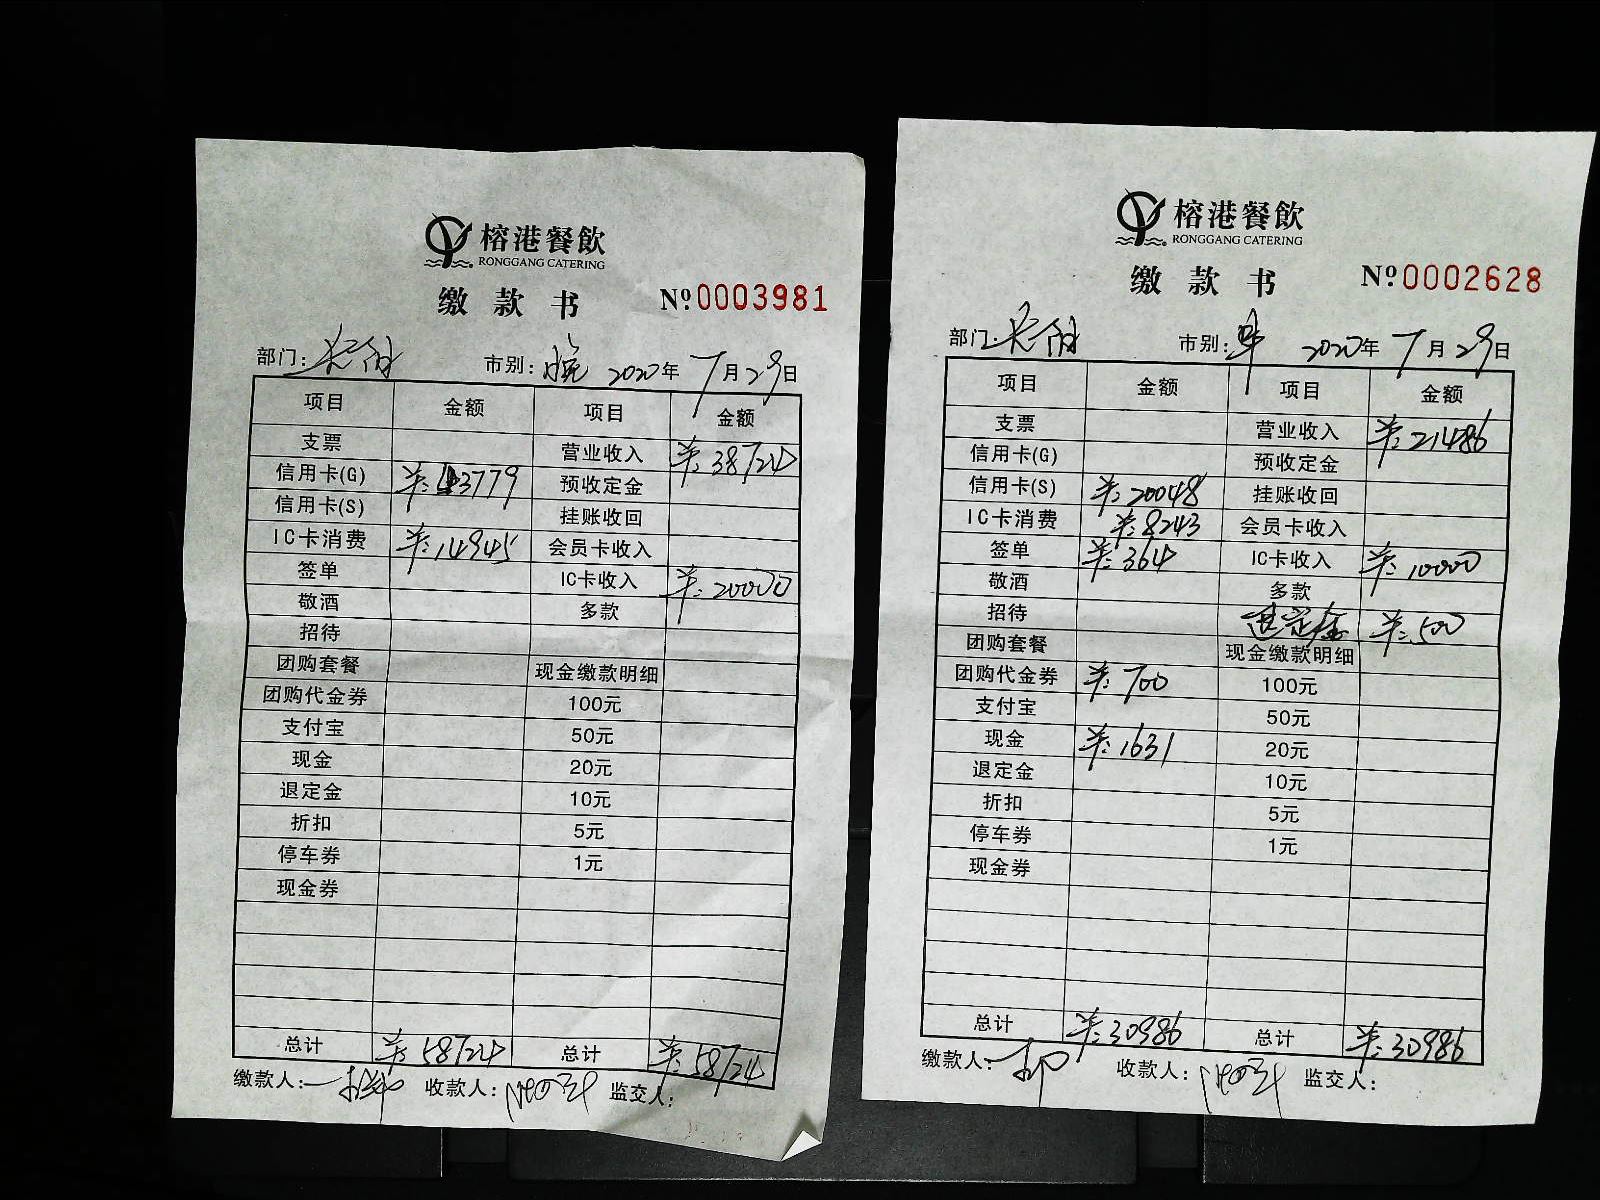 榕港餐飲
RONGGANG CATERING
缴款书 №0003981
部门: 市别:晚 2020年7月29日
项目 金额 项目 金额
支票 营业收入 羊:38724
信用卡(G) 羊:43779 预收定金
信用卡(S) 挂账收回
IC卡消费 羊:14945 会员卡收入
签单 IC卡收入 羊:20000
敬酒 多款
招待
团购套餐 现金缴款明细
团购代金券 100元
支付宝 50元
现金 20元
退定金 10元
折扣 5元
停车券 1元
现金券
总计 羊:58724 总计 羊:58724
缴款人: 收款人: 监交人:
榕港餐飲
RONGGANG CATERING
缴款书 №0002628
部门: 市别:早 2020年7月29日
项目 金额 项目 金额
支票 营业收入 羊:21486
信用卡(G) 预收定金
信用卡(S) 羊:20048 挂账收回
IC卡消费 羊:8243 会员卡收入
签单 羊:364 IC卡收入 羊:10000
敬酒 多款
招待 退定金 羊:500
团购套餐 现金缴款明细
团购代金券 羊:700 100元
支付宝 50元
现金 羊:1631 20元
退定金 10元
折扣 5元
停车券 1元
现金券
总计 羊:30986 总计 羊:30986
缴款人: 收款人: 监交人: